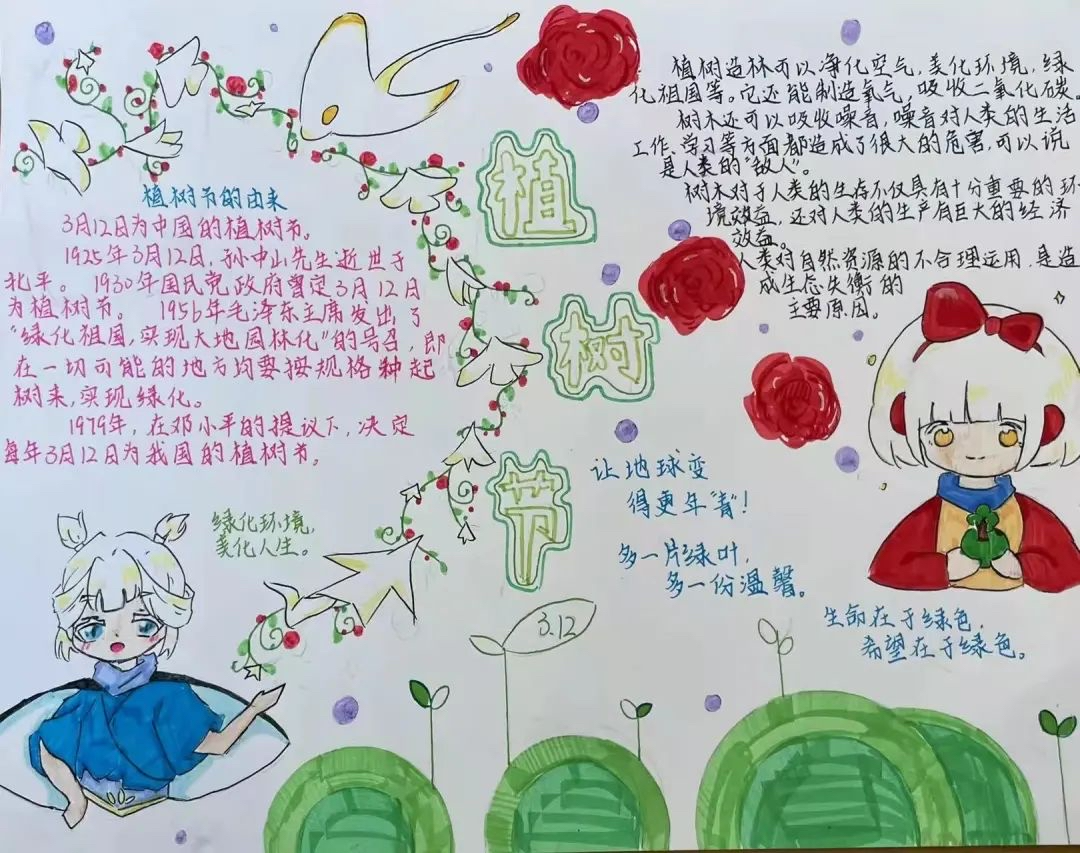 植树节
植树节的由来
3月12日为中国的植树节。
1925年3月12日,孙中山先生逝世于
北平。1930年国民党政府暂定3月12日
为植树节。1956年毛泽东主席发出了
“绿化祖国,实现大地园林化”的号召,即
在一切可能的地方均要按规格种起
树来,实现绿化。
1979年,在邓小平的提议下,决定
每年3月12日为我国的植树节。
绿化环境,
美化人生。
植树造林可以净化空气,美化环境,绿
化祖国等。它还能制造氧气,吸收二氧化碳。
树木还可以吸收噪音,噪音对人类的生活
工作,学习等方面都造成了很大的危害,可以说
是人类的“敌人”。
树木对于人类的生存不仅具有十分重要的环
境效益,还对人类的生产有巨大的经济
效益。
人类对自然资源的不合理运用,是造
成生态失衡的
主要原因。
让地球变
得更年“青”!
多一片绿叶,
多一份温馨。
生命在于绿色,
希望在于绿色。
3.12